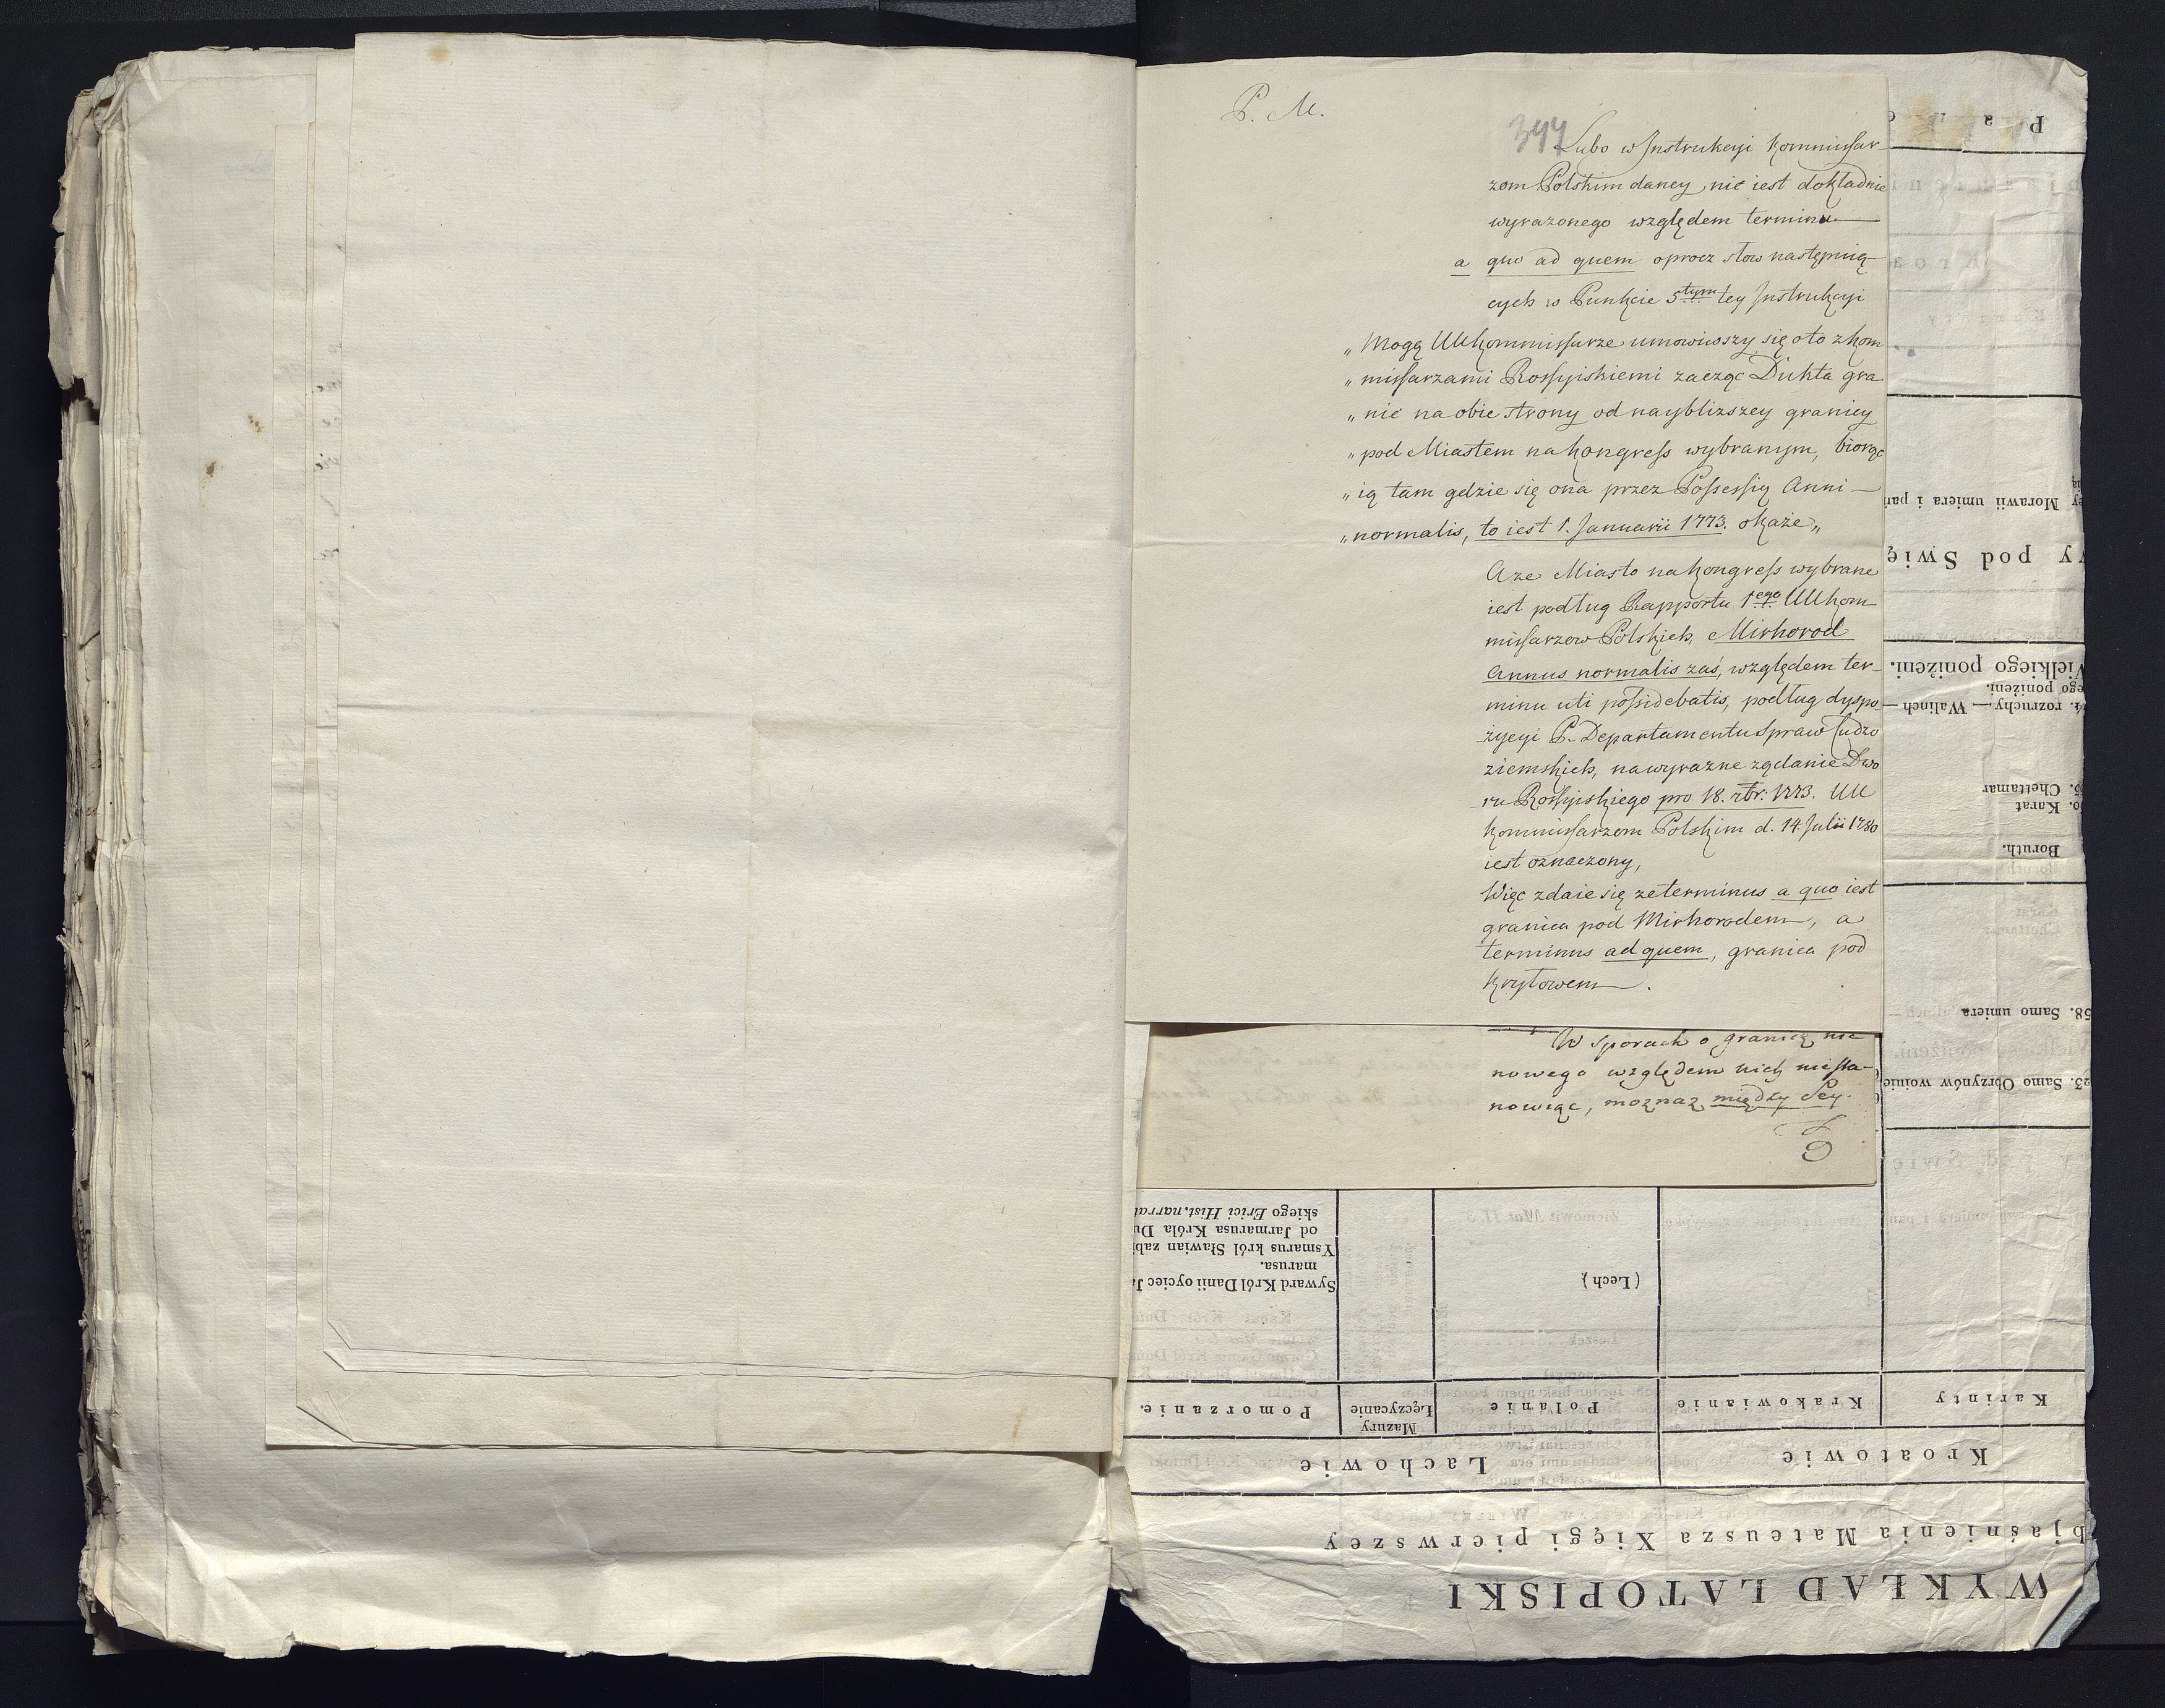 P. M.
394
Lubo w Instrukcyi Kommissar-
zom Polskim daney, nie iest dokładnie
wyrazonego względem terminu
a quo ad quem oprocz słow następuią-
cych w Punkcie 5tym tey Instrukcyi
„Mogą UUKommissarze umowiwszy się oto z Kom
„missarzami Rossyiskiemi zacząc Dukta gra
„nic na obie strony od naybliższey granicy
„pod Miastem na Kongress wybranym, biorąc
„ią tam gdzie się ona przez Possessią Anni
„normalis, to iest 1. Januarii 1773. okaże„
A ze Miasto na Kongress wybrane
iest podług Rapportu 1ego UUKom
missarzow Polskich, Mirhorod
Annus normalis zaś, względem ter-
minu uti possidebatis, podług dyspo-
zycyi P. Departamentu Spraw Cudzo
ziemskich, na wyrazne ządanie Dwo
ru Rossyiskiego pro 18. 7br: 1773. UU
Kommissarzom Polskim d. 14. Julii 1780
iest oznaczony,
Więc zdaie się ze terminus a quo iest
granica pod Mirhorodem, a
terminus ad quem, granica pod
Kryłowem.
W sporach o granicę nic
nowego względem nich niesta-
nowiąc, moznaz między Sey.
WYKŁAD LATOPISKI
bjaśnienia Mateusza Xięgi pierwszey
Kroatowie
Lachowie
Karinty
Krakowianie
Polanie
Mazury
Łęczycanie
Pomorzanie.
(Lech)
Syward Król Danii oyciec Ja
marusa.
Ysmarus król Sławian zabi
od Jarmarusa Króla Du
skiego Erici Hist. narrat
23. Samo Obrzynów woiuie
58. Samo umiera
Boruth.
Karat
Chettamar
rozruchy.— Walinch —
ego poniżeni.
Wielkiego poniżeni.
y pod Swię
ey Morawii umiera i pan